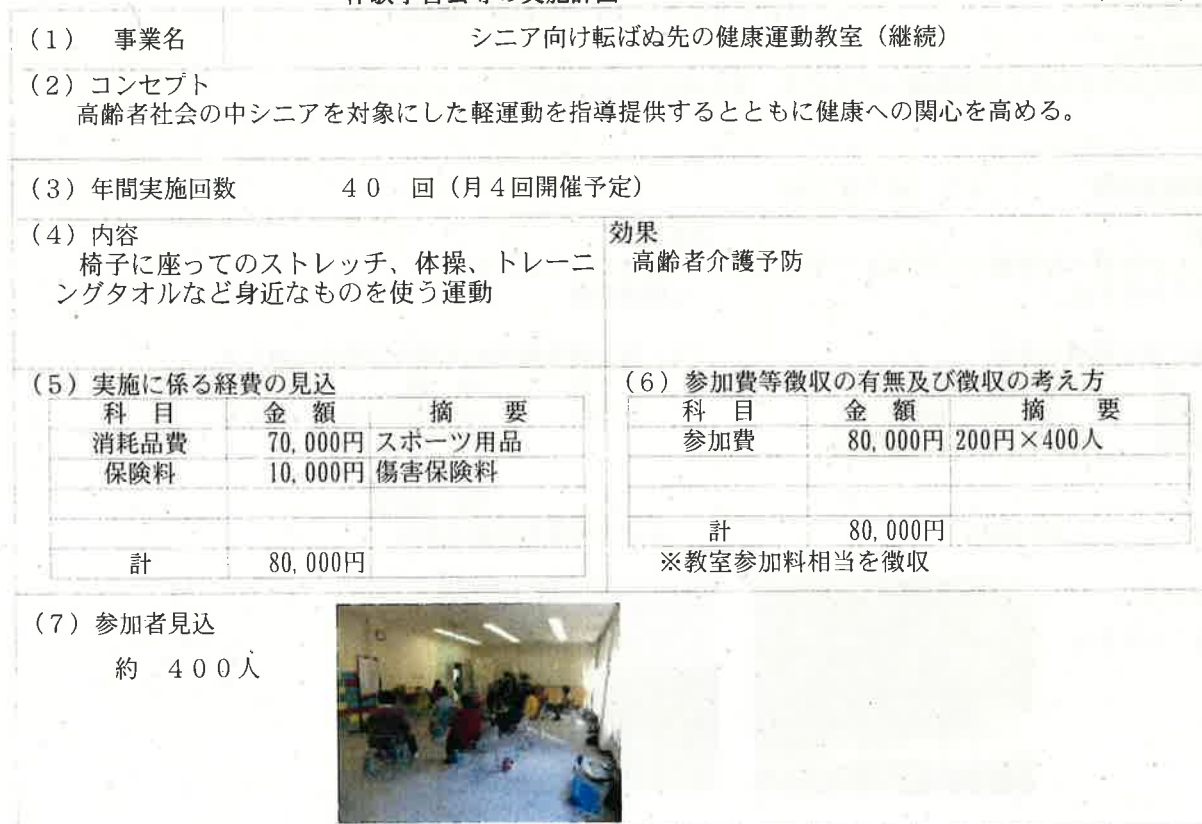 (1) 事業名 シニア向け転ばぬ先の健康運動教室(継続)
(2)コンセプト
高齢者社会の中シニアを対象にした軽運動を指導提供するとともに健康への関心を高める。
(3)年間実施回数 40 回(月4回開催予定)
(4)内容
椅子に座ってのストレッチ、体操、トレーニ
ングタオルなど身近なものを使う運動
効果
高齢者介護予防
(5)実施に係る経費の見込
科 目 金 額 摘 要
消耗品費 70,000円 スポーツ用品
保険料 10,000円 傷害保険料
計 80,000円
(6)参加費等徴収の有無及び徴収の考え方
科 目 金 額 摘 要
参加費 80,000円 200円×400人
計 80,000円
※教室参加料相当を徴収
(7)参加者見込
約 400人